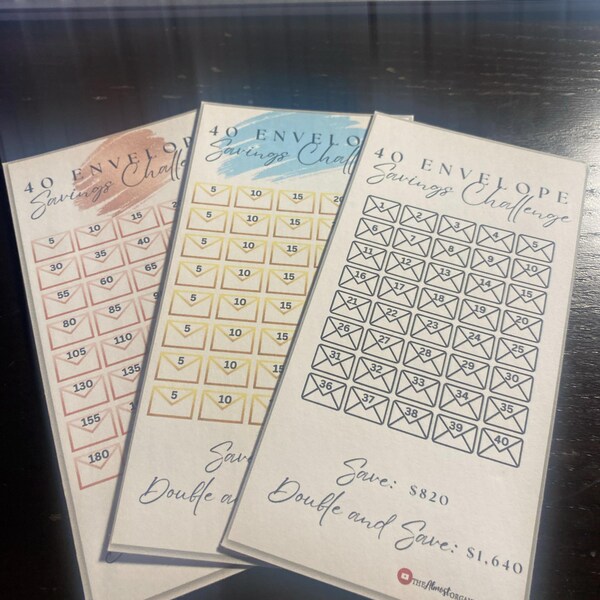 40 ENVELOP
Savings Challe
5 10 15
30 35 40
55 60 65
80 85
105 110
130 135
155
180
40 ENVELOP
Savings Challe
5 10 15 20
5 10 15
5 10 15
5 10 15
5 10 15
5 10 15
5 10 15
5 10
Sav
Double and
40 ENVELOPE
Savings Challenge
1 2 3 4 5
6 7 8 9 10
11 12 13 14 15
16 17 18 19 20
21 22 23 24 25
26 27 28 29 30
31 32 33 34 35
36 37 38 39 40
Save: $820
Double and Save: $1,640
THE Almost ORGA